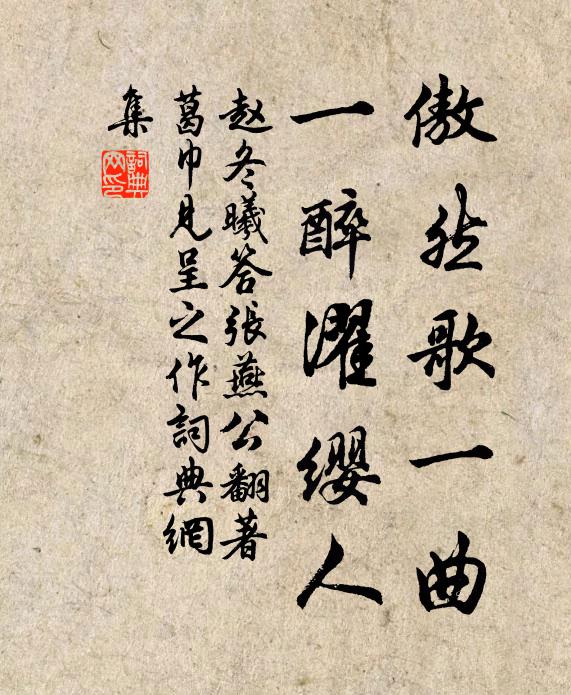 傲然歌一曲
一醉濯缨人
赵冬曦答張燕公翻著
葛巾見呈之作詞典網
集
詞典
网印